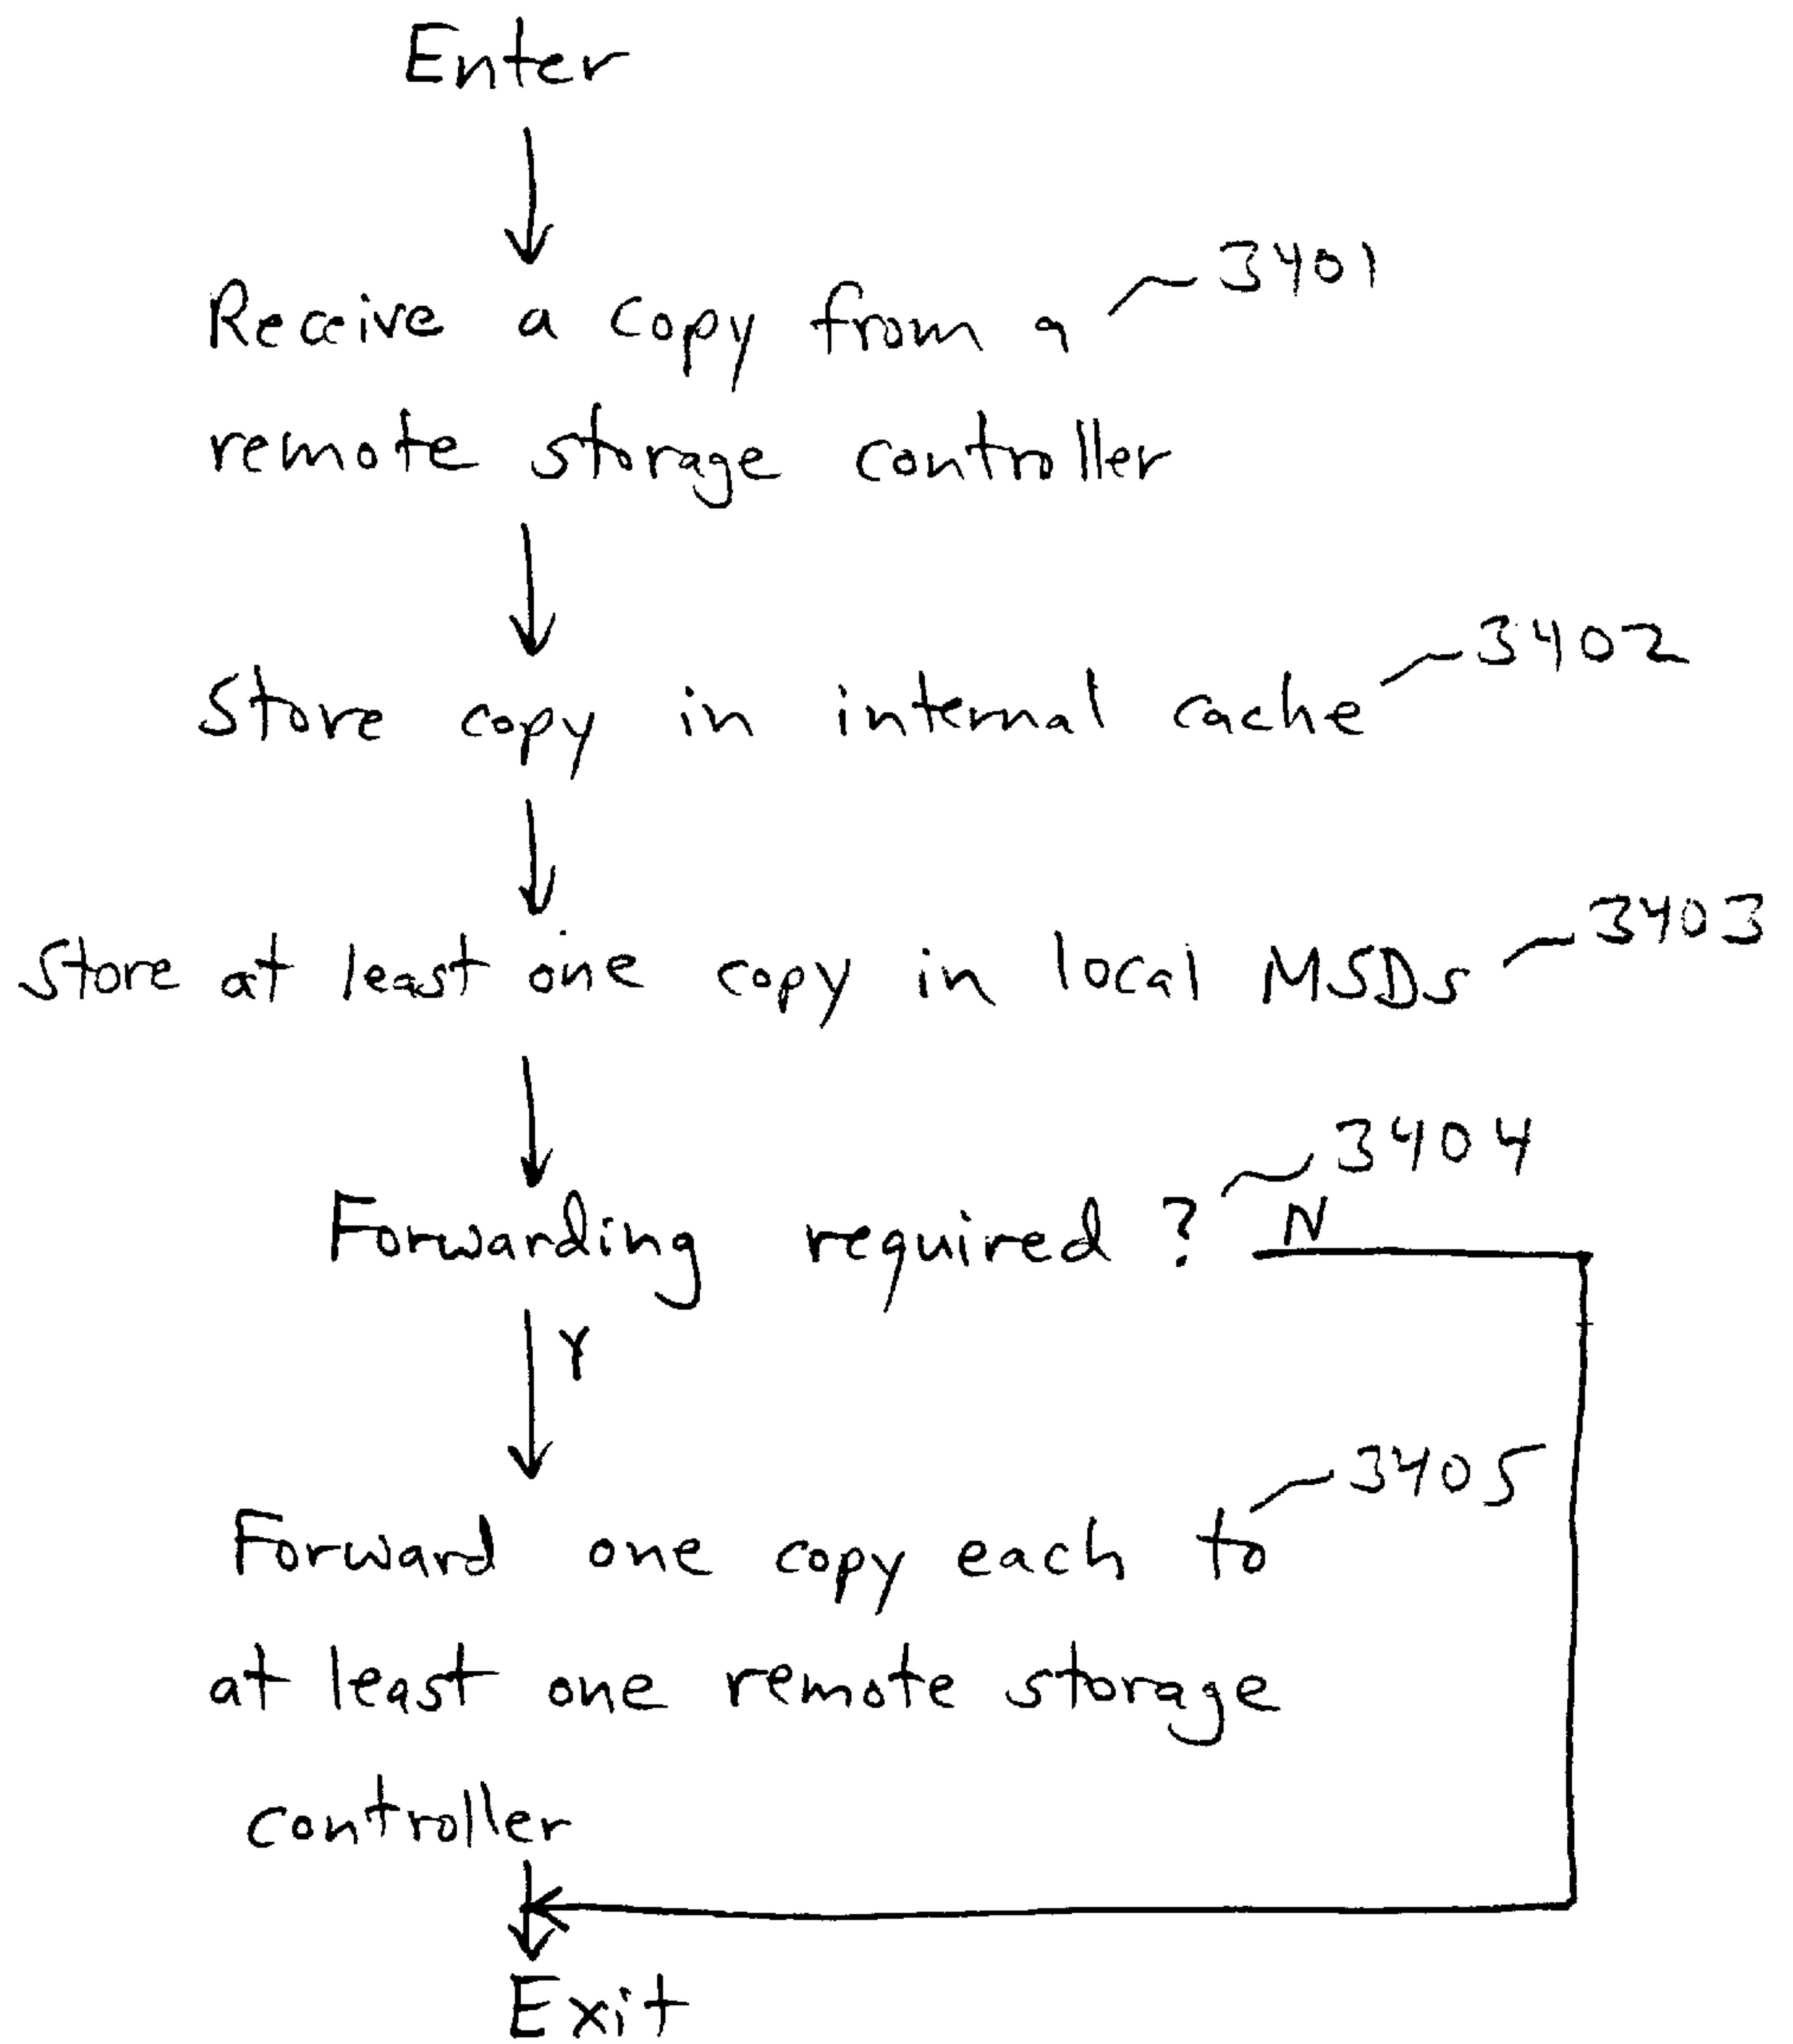 Enter
Receive a copy from a 3401
remote storage controller
Store copy in internal cache 3402
Store at least one copy in local MSDs 3403
Forwarding required? 3404
N
Y
Forward one copy each to 3405
at least one remote storage
controller
Exit